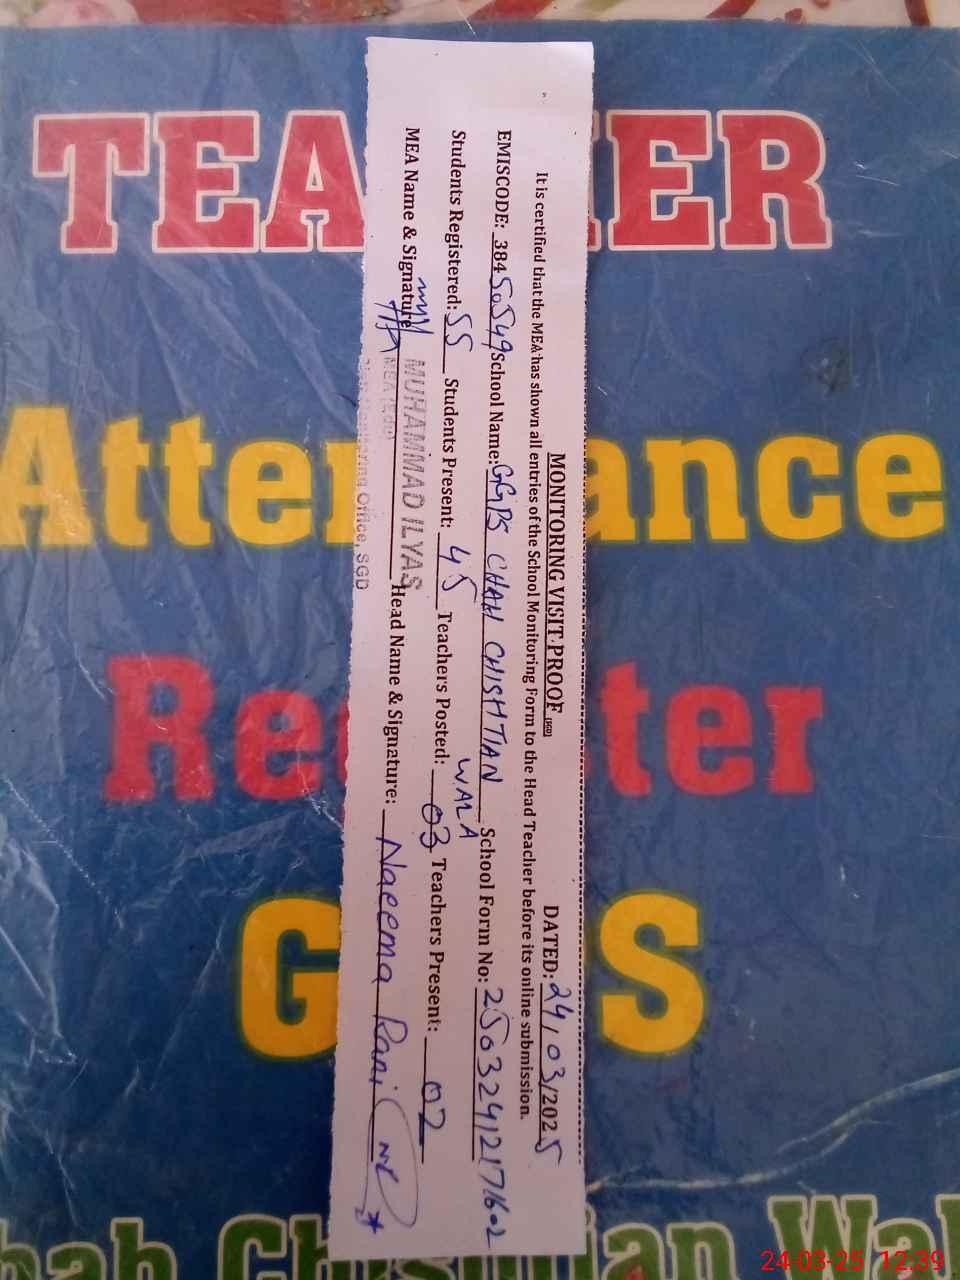 TEA HER
Atte ance
Re ter
G S
hah Chishtian Wal
MONITORING VISIT PROOF (SGD) DATED: 24/03/2025
It is certified that the MEA has shown all entries of the School Monitoring Form to the Head Teacher before its online submission.
EMISCODE: 38450549 School Name: GGPS CHAH CHISHTIAN WALA School Form No: 25032412171602
Students Registered: 55 Students Present: 45 Teachers Posted: 03 Teachers Present: 02
MEA Name & Signature Head Name & Signature: Naeema Rani
MUHAMMAD ILYAS
MEA (Edu)
Monitoring Office, SGD
24-03-25 12:39